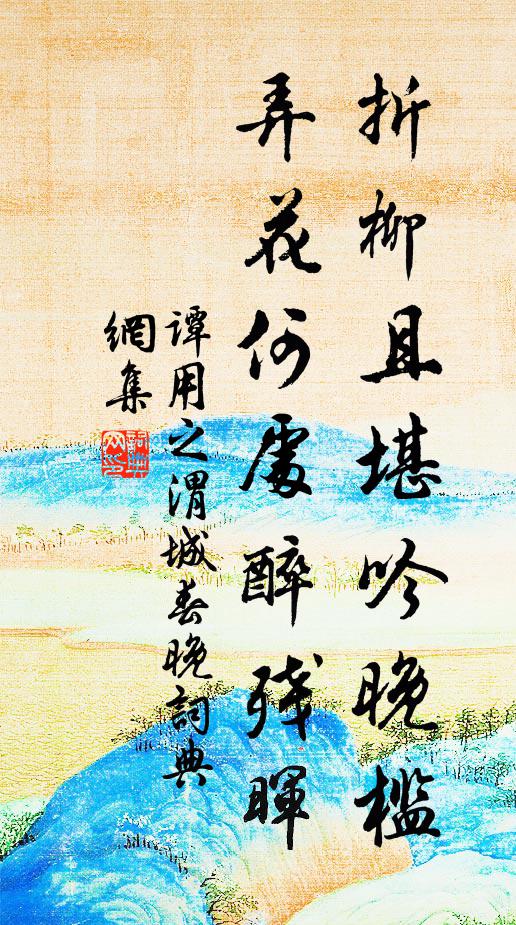 折柳且堪吟晚槛
弄花何處醉殘暉
譚用之渭城春晚詞典
網集